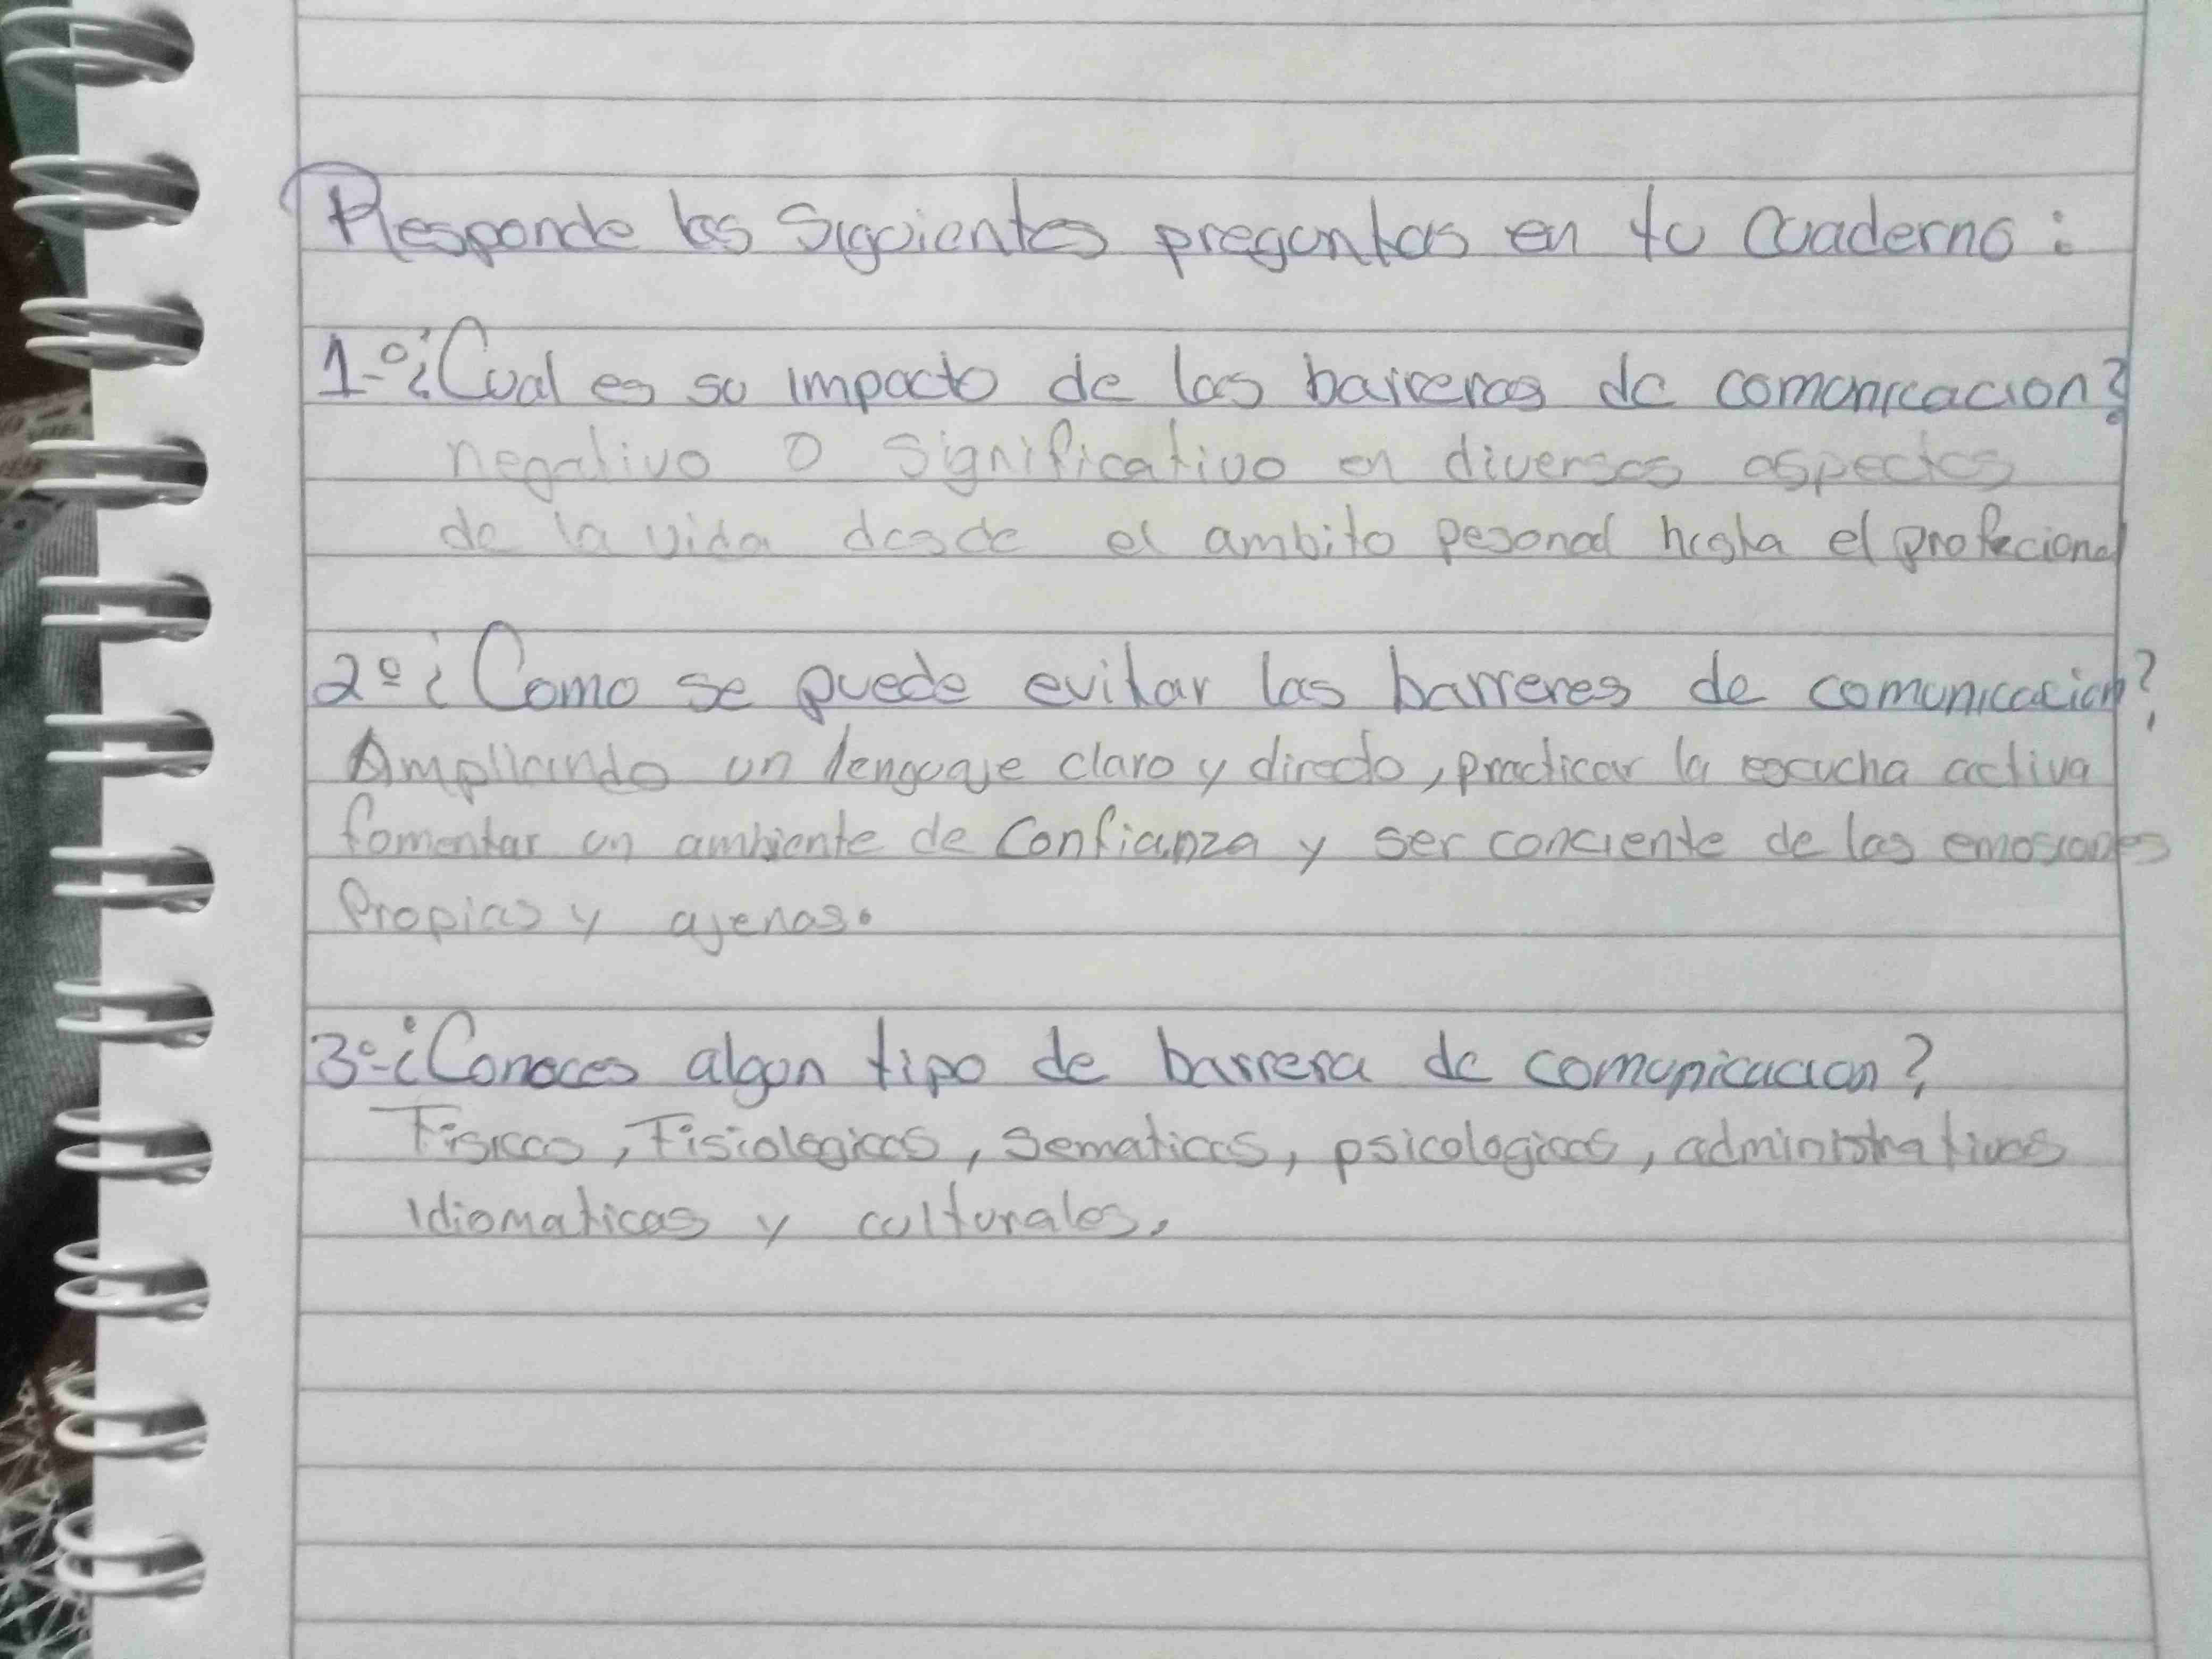 Responde las siguientes preguntas en tu cuaderno:
1-° ¿Cual es su impacto de las barreras de comonicacion?
negativo o significativo en diversos aspectos
de la vida desde el ambito pesonal hasta el profecional
2º ¿Como se puede evitar las barreres de comunicacion?
Ampliando un lenguaje claro y directo, practicar la escucha activa
fomentar un ambiente de confianza y ser conciente de las emosiones
Propias y ajenas.
3°-¿Conoces algun tipo de barrera de comunicacion?
Fisicas, Fisiologicas, sematicas, psicologicas, administrativas
Idiomaticas y culturales.